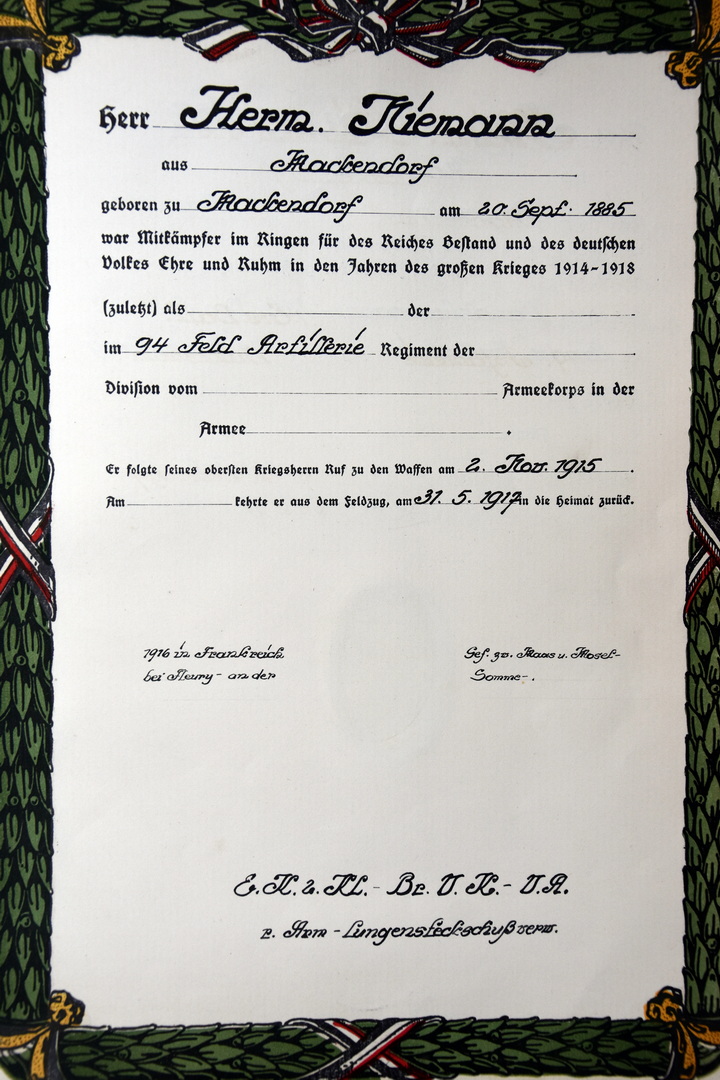 Herr Herm. Niemann
aus Mackendorf
geboren zu Mackendorf am 20. Sept. 1885
war Mitkämpfer im Ringen für des Reiches Bestand und des deutschen
Volkes Ehre und Ruhm in den Jahren des großen Krieges 1914-1918
(zuletzt) als der
im 94 Feld Artillerie Regiment der
Division vom Armeekorps in der
Armee .
Er folgte seines obersten Kriegsherrn Ruf zu den Waffen am 2. Nov. 1915 .
Am kehrte er aus dem Feldzug, am 31. 5. 1917 in die Heimat zurück.
1916 in Frankreich Gef. zw. Maas u. Mosel-
bei Fleury - an der Somme - .
E. K. 2. Kl. - Br. V. K. - V. A.
r. Arm - Lungensteckschuß verw.